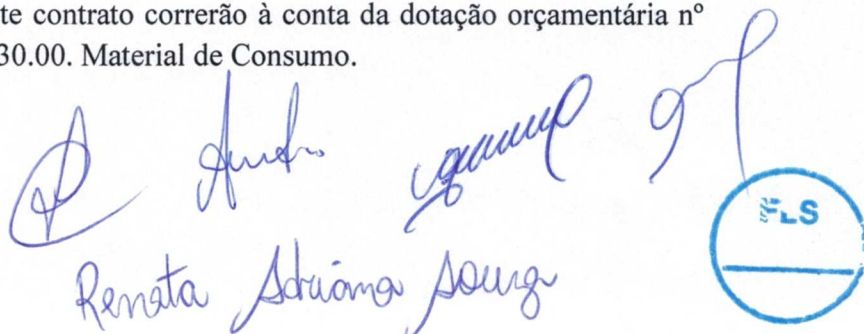 te contrato correrão à conta da dotação orçamentária nº
30.00. Material de Consumo.
FLS
Renata Adriana Souza